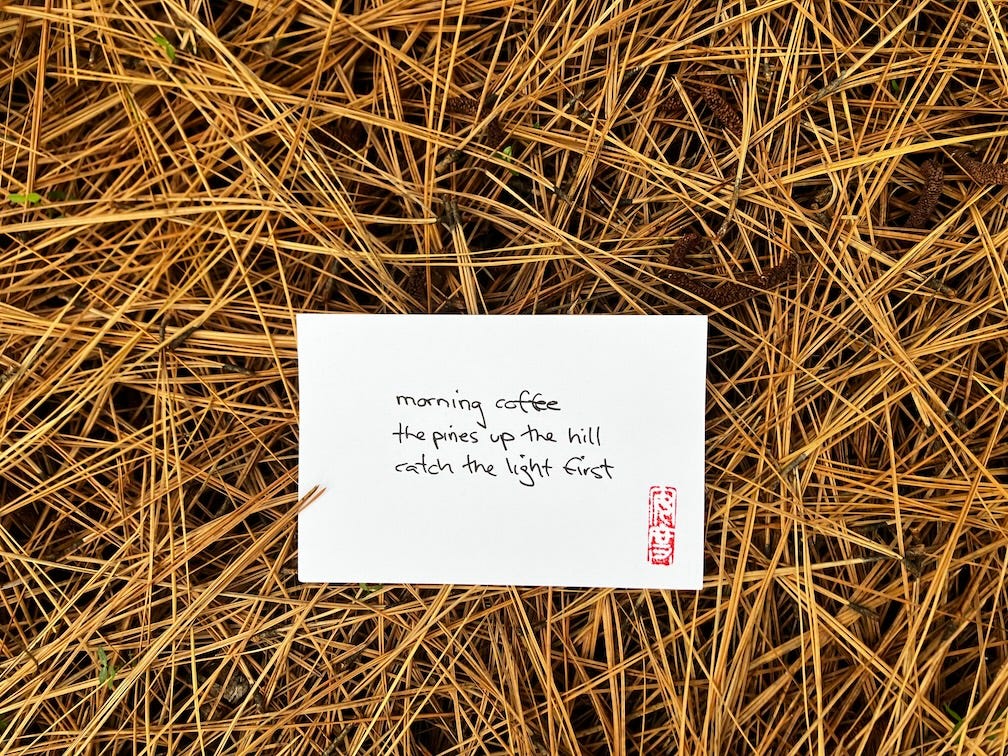 morning coffee
the pines up the hill
catch the light first